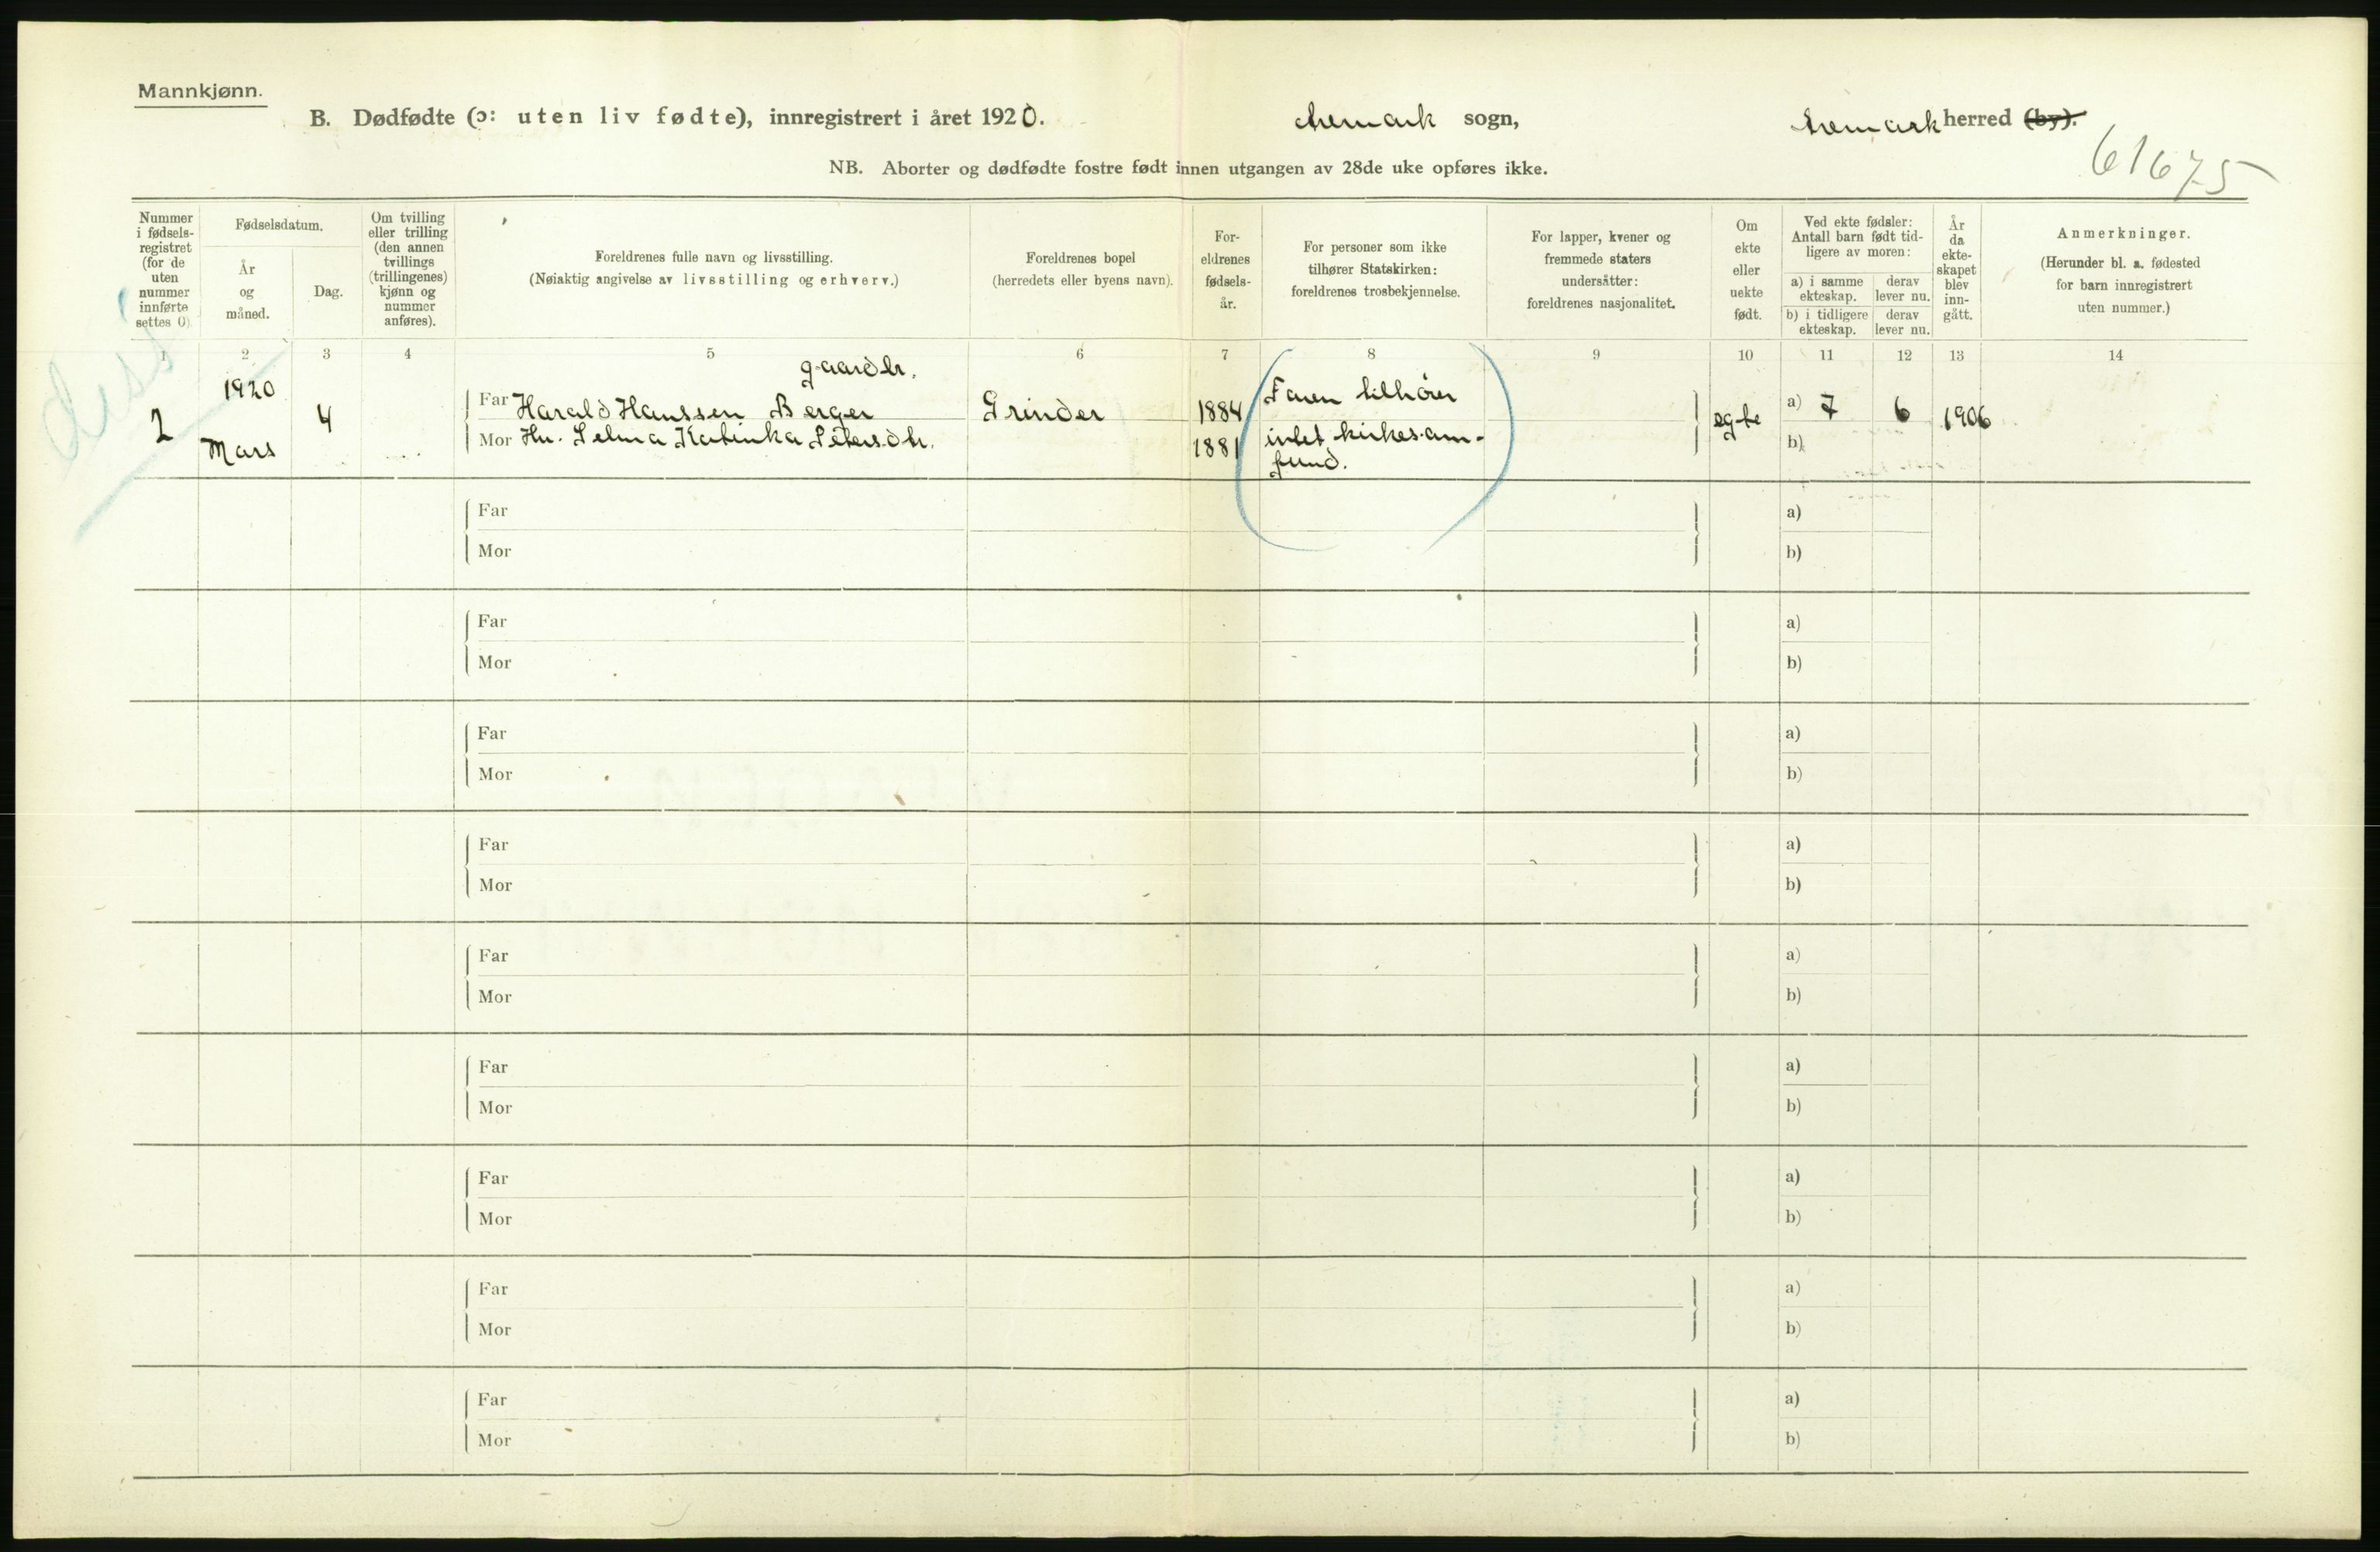 Mannkjønn.
B. Dødfødte (ɔ: uten liv fødte), innregistrert i året 1920. Aremark sogn, Aremark herred (by).
61675
NB. Aborter og dødfødte fostre født innen utgangen av 28de uke opføres ikke.
Nummer i fødsels-registret (for de uten nummer innførte settes 0).
Fødselsdatum.
År og måned.
Dag.
Om tvilling eller trilling (den annen tvillings (trillingenes) kjønn og nummer anføres).
Foreldrenes fulle navn og livsstilling.
(Nøiaktig angivelse av livsstilling og erhverv.)
Foreldrenes bopel
(herredets eller byens navn).
For-eldrenes fødsels-år.
For personer som ikke tilhører Statskirken: foreldrenes trosbekjennelse.
For lapper, kvener og fremmede staters undersåtter: foreldrenes nasjonalitet.
Om ekte eller uekte født.
Ved ekte fødsler: Antall barn født tid-ligere av moren:
a) i samme ekteskap.
derav lever nu.
b) i tidligere ekteskap.
derav lever nu.
År da ekte-skapet blev inn-gått.
Anmerkninger.
(Herunder bl. a. fødested for barn innregistrert uten nummer.)
1 2 3 4 5 6 7 8 9 10 11 12 13 14
gaardbr.
1920
Far Harald Hanssen Berger Grinder 1884 Faren tilhører
2 4 egte a) 7 6 1906
Mars
Mor Hu. Selma Katinka Petersdtr. 1881 intet kirkesam-
fund.
b)
Far a)
Mor b)
Far a)
Mor b)
Far a)
Mor b)
Far a)
Mor b)
Far a)
Mor b)
Far a)
Mor b)
Far a)
Mor b)
Far a)
Mor b)
Far a)
Mor b)